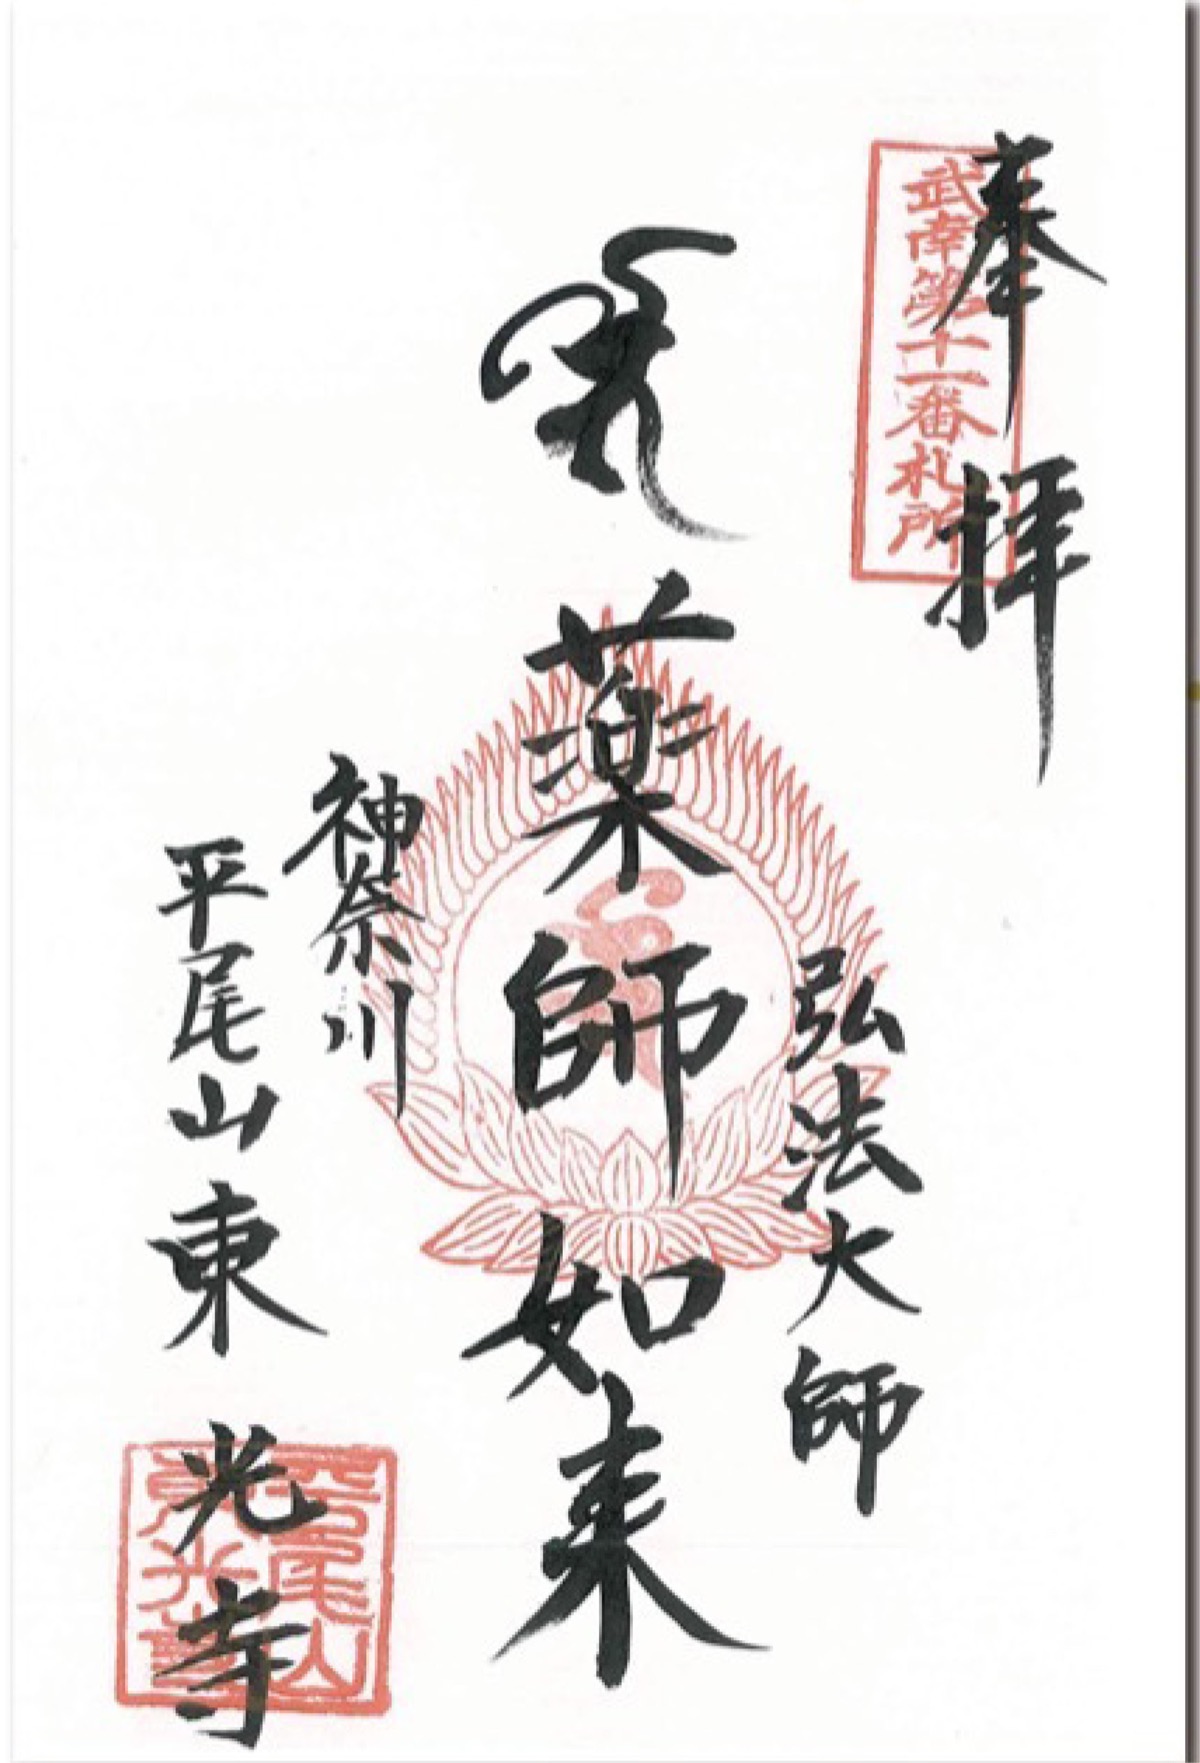 奉拝
武南第十一番札所
弘法大師
薬師如来
神奈川
平尾山東光寺
平尾山
東光寺